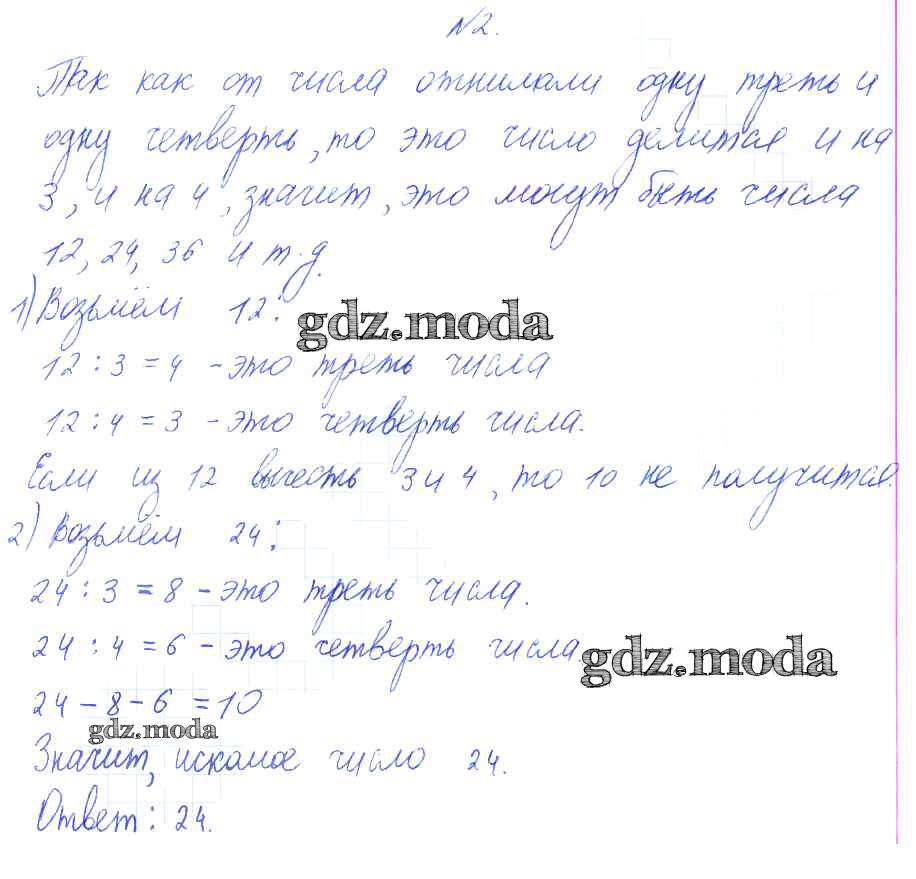 №2.
Так как от числа отнимали одну треть и
одну четверть, то это число делится и на
3, и на 4, значит, это могут быть числа
12, 24, 36 и т.д.
1) Возьмём 12:
gdz.moda
12 : 3 = 4 - это треть числа
12 : 4 = 3 - это четверть числа.
Если из 12 вычесть 3 и 4, то 10 не получится.
2) Возьмём 24:
24 : 3 = 8 - это треть числа.
24 : 4 = 6 - это четверть числа.
gdz.moda
24 - 8 - 6 = 10
gdz.moda
Значит, искомое число 24.
Ответ: 24.